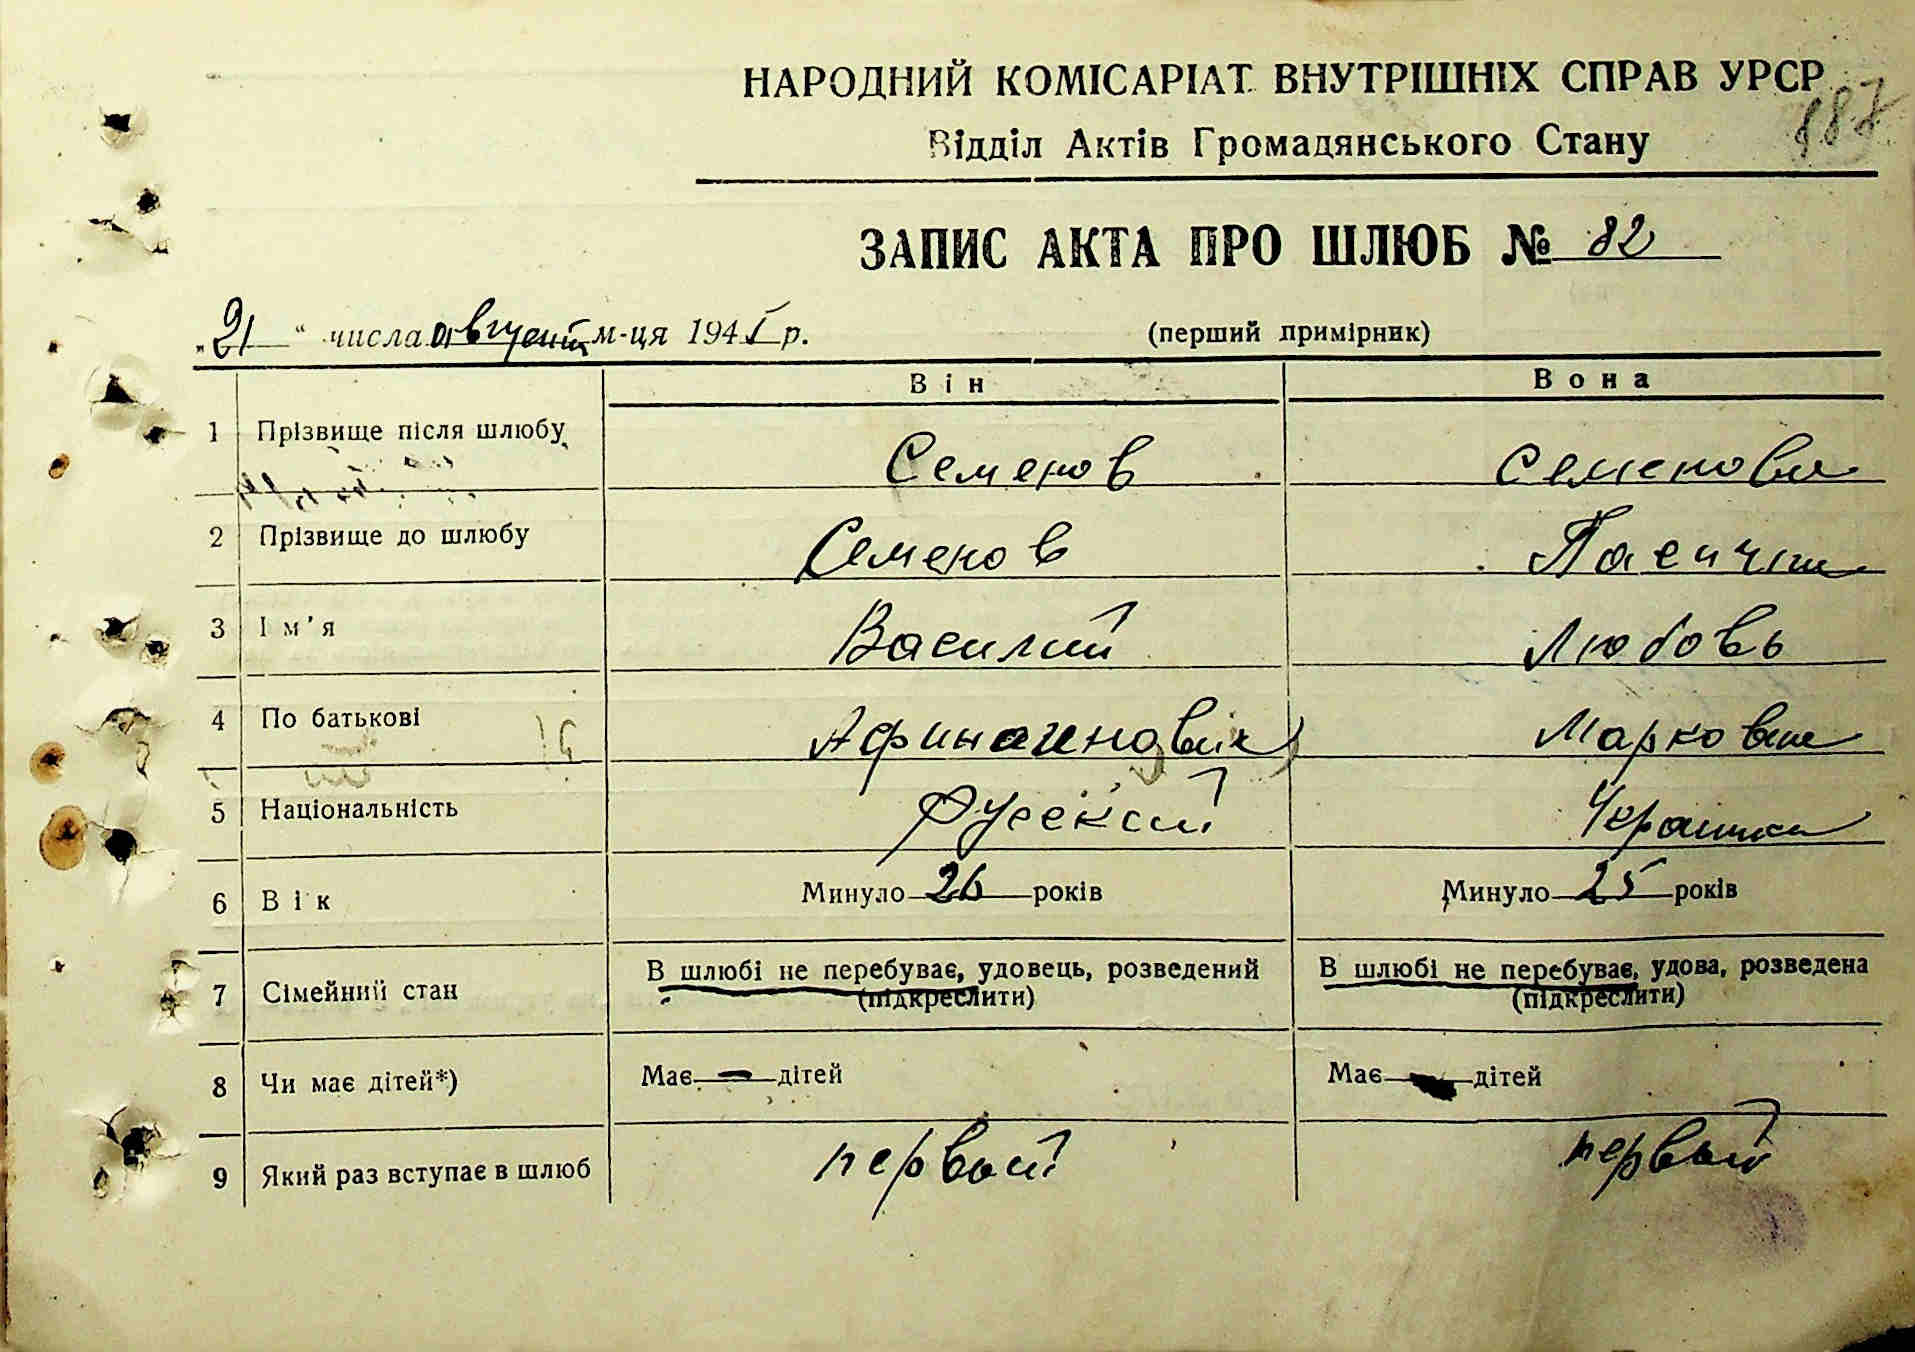 НАРОДНИЙ КОМІСАРІАТ ВНУТРІШНІХ СПРАВ УРСР
187
Відділ Актів Громадянського Стану
ЗАПИС АКТА ПРО ШЛЮБ № 82
„21“ числа август м-ця 1945 р.
(перший примірник)
Він Вона
1 Прізвище після шлюбу Семенов Семенова
2 Прізвище до шлюбу Семенов
3 Ім'я Василий Любовь
4 По батькові Марковна
5 Національність Русский
6 Вік Минуло 26 років Минуло 25 років
7 Сімейний стан В шлюбі не перебуває, удовець, розведений В шлюбі не перебуває, удова, розведена
(підкреслити) (підкреслити)
8 Чи має дітей*) Має — дітей Має дітей
9 Який раз вступає в шлюб первый первый